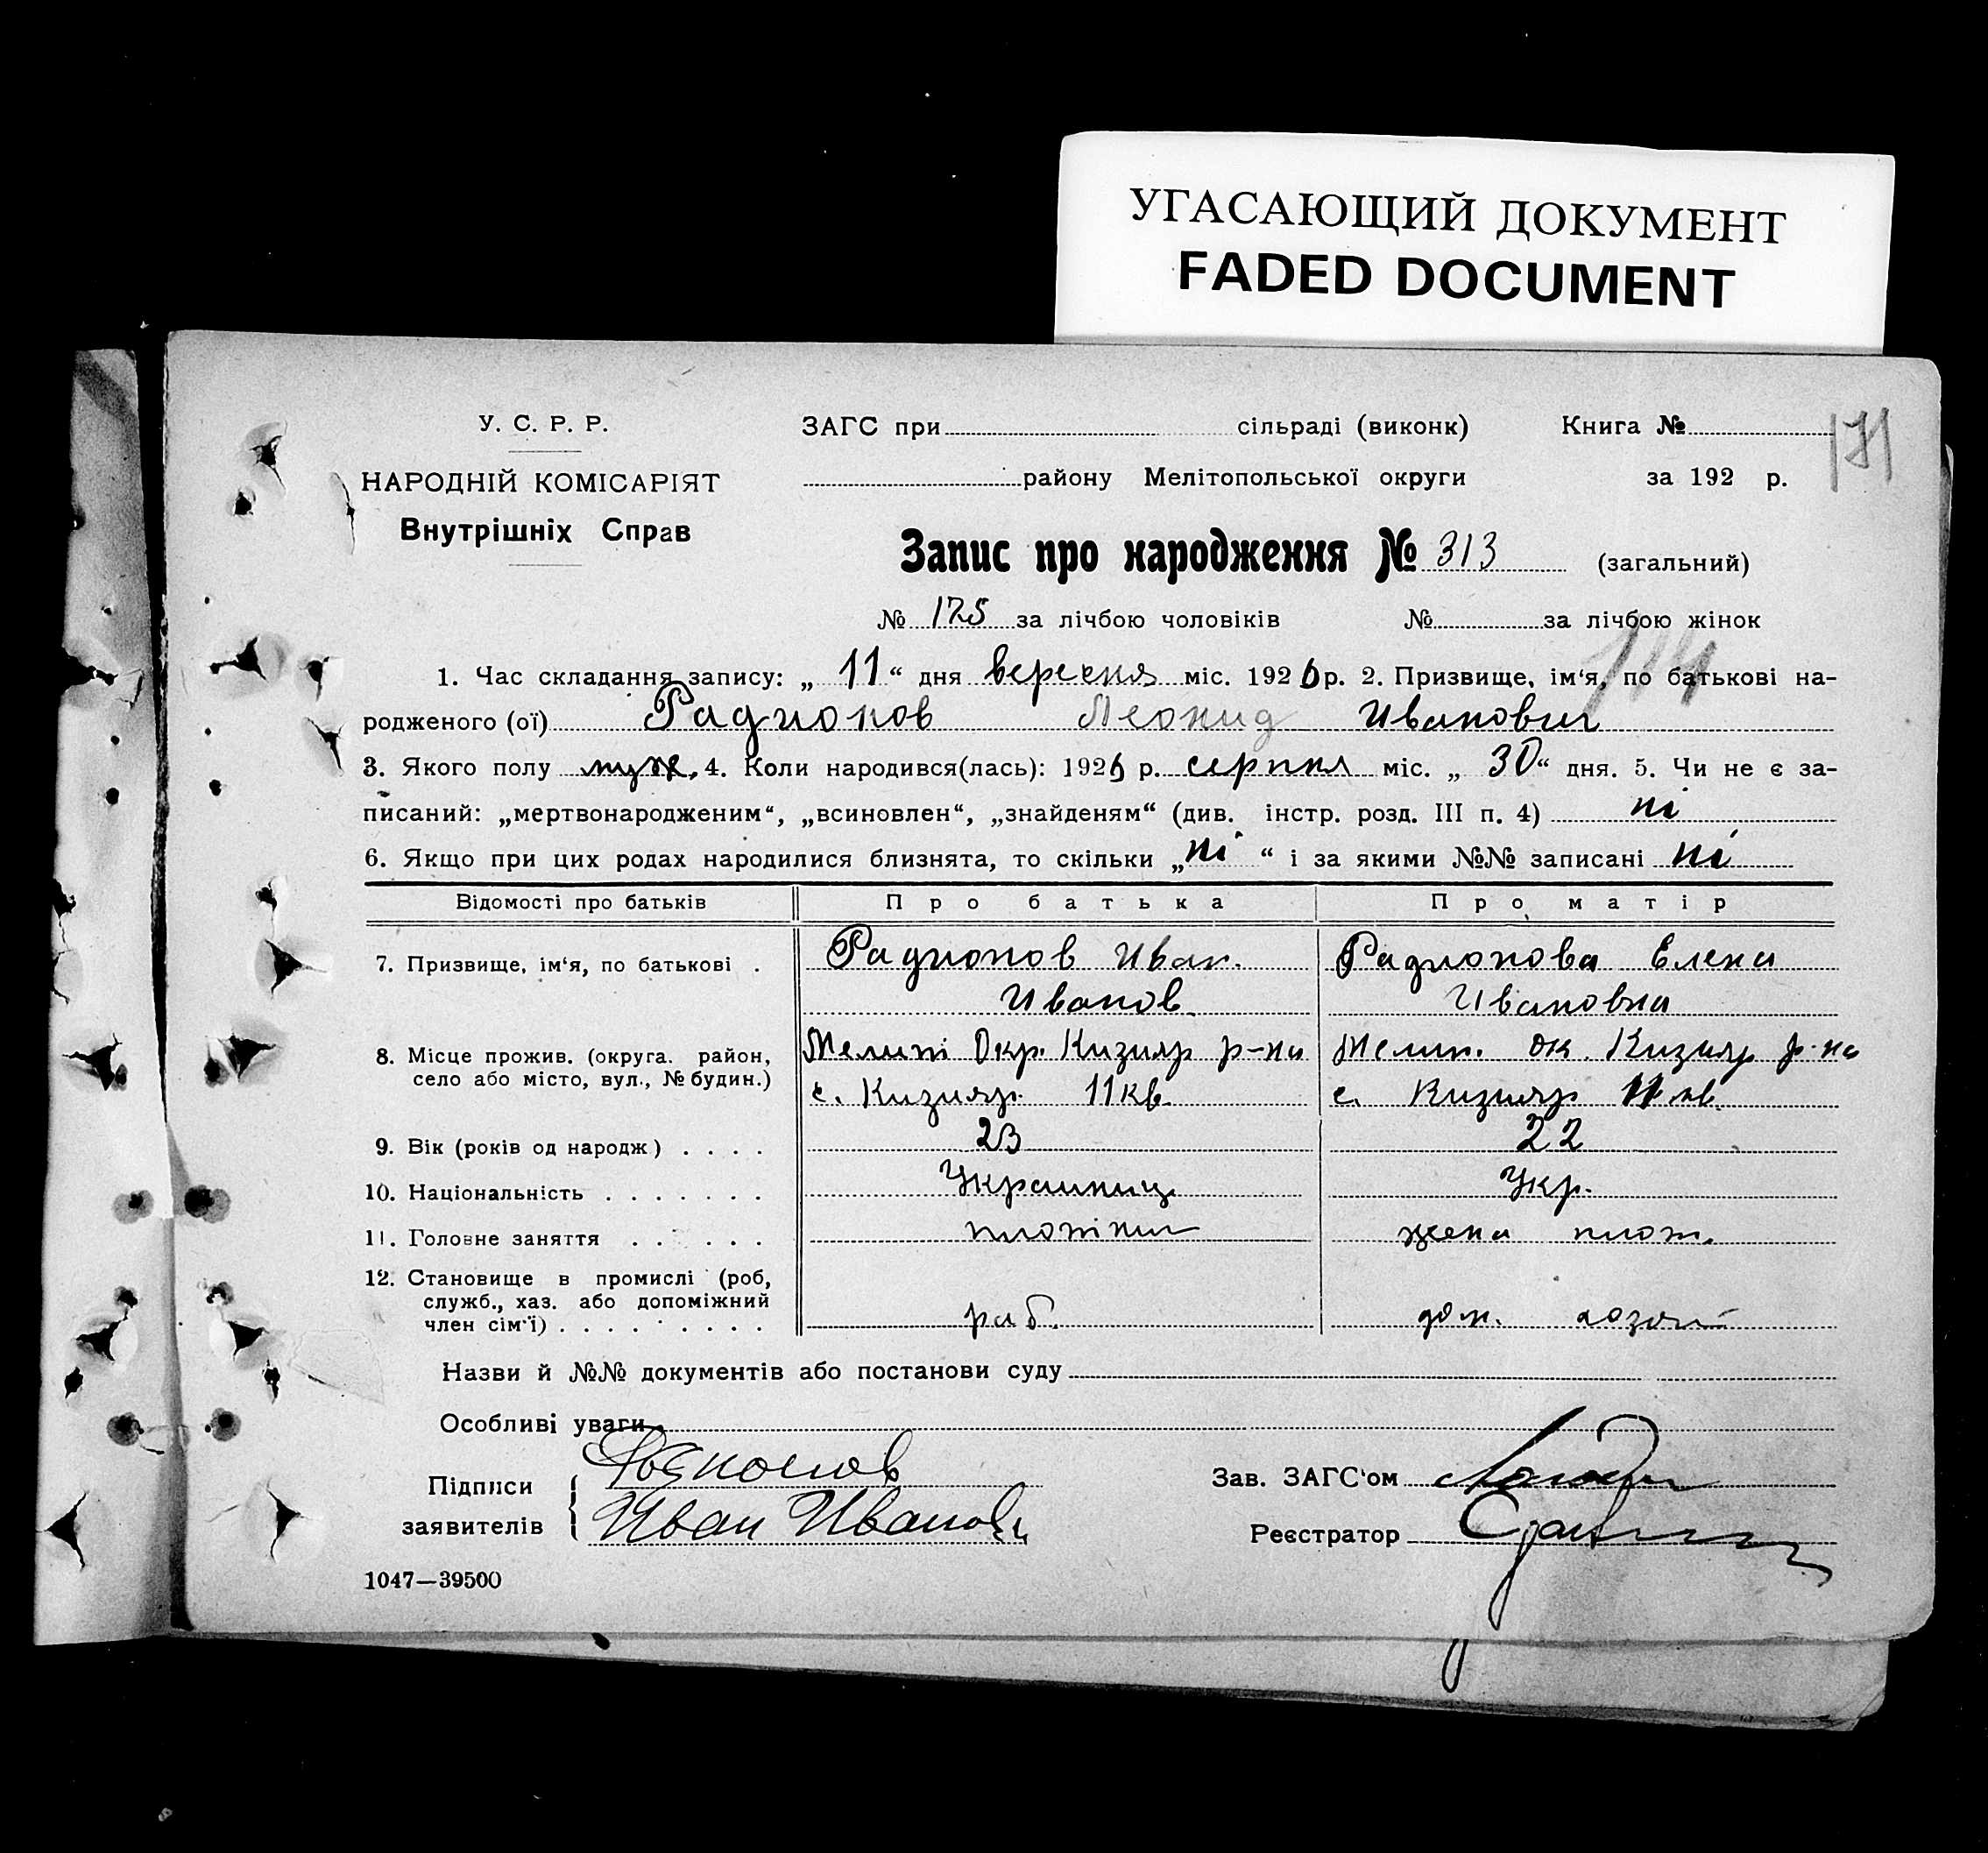 УГАСАЮЩИЙ ДОКУМЕНТ
FADED DOCUMENT
У. С. Р. Р.
НАРОДНІЙ КОМІСАРІЯТ
Внутрішніх Справ
ЗАГС при сільраді (виконк) Книга №
171
району Мелітопольської округи за 192 р.
Запис про народження № 313 (загальний)
№ 175 за лічбою чоловіків № за лічбою жінок
1. Час складання запису: „ 11 “ дня вересня міс. 1926 р. 2. Призвище, ім‘я, по батькові на-
родженого (ої) Радионов Леонид Иванович
3. Якого полу муж. 4. Коли народився(лась): 1926 р. серпня міс. „ 30 “ дня. 5. Чи не є за-
писаний: „мертвонародженим“, „всиновлен“, „знайденям“ (див. інстр. розд. III п. 4) ні
6. Якщо при цих родах народилися близнята, то скільки „ ні “ і за якими №№ записані ні
Відомості про батьків Про батька Про матір
7. Призвище, ім‘я, по батькові . Радионов Иван. Радионова Елена
Иванов Ивановна
8. Місце прожив. (округа. район, Мелит Окр. Кизияр р-на Мелит. ок. Кизияр р-на
село або місто, вул., № будин.) с. Кизияр 11 кв. с. Кизияр 11 кв.
9. Вік (років од народж) . . . . 23 22
10. Національність . . . . . . . Украинец Укр.
11. Головне заняття . . . . . . плотник жена плот.
12. Становище в промислі (роб,
служб., хаз. або допоміжний
член сім‘ї) . . . . . . . . . раб. дом. хозяй
Назви й №№ документів або постанови суду
Особливі уваги
Підписи
заявителів Иван Иванов
Зав. ЗАГС‘ом
Реєстратор
1047—39500